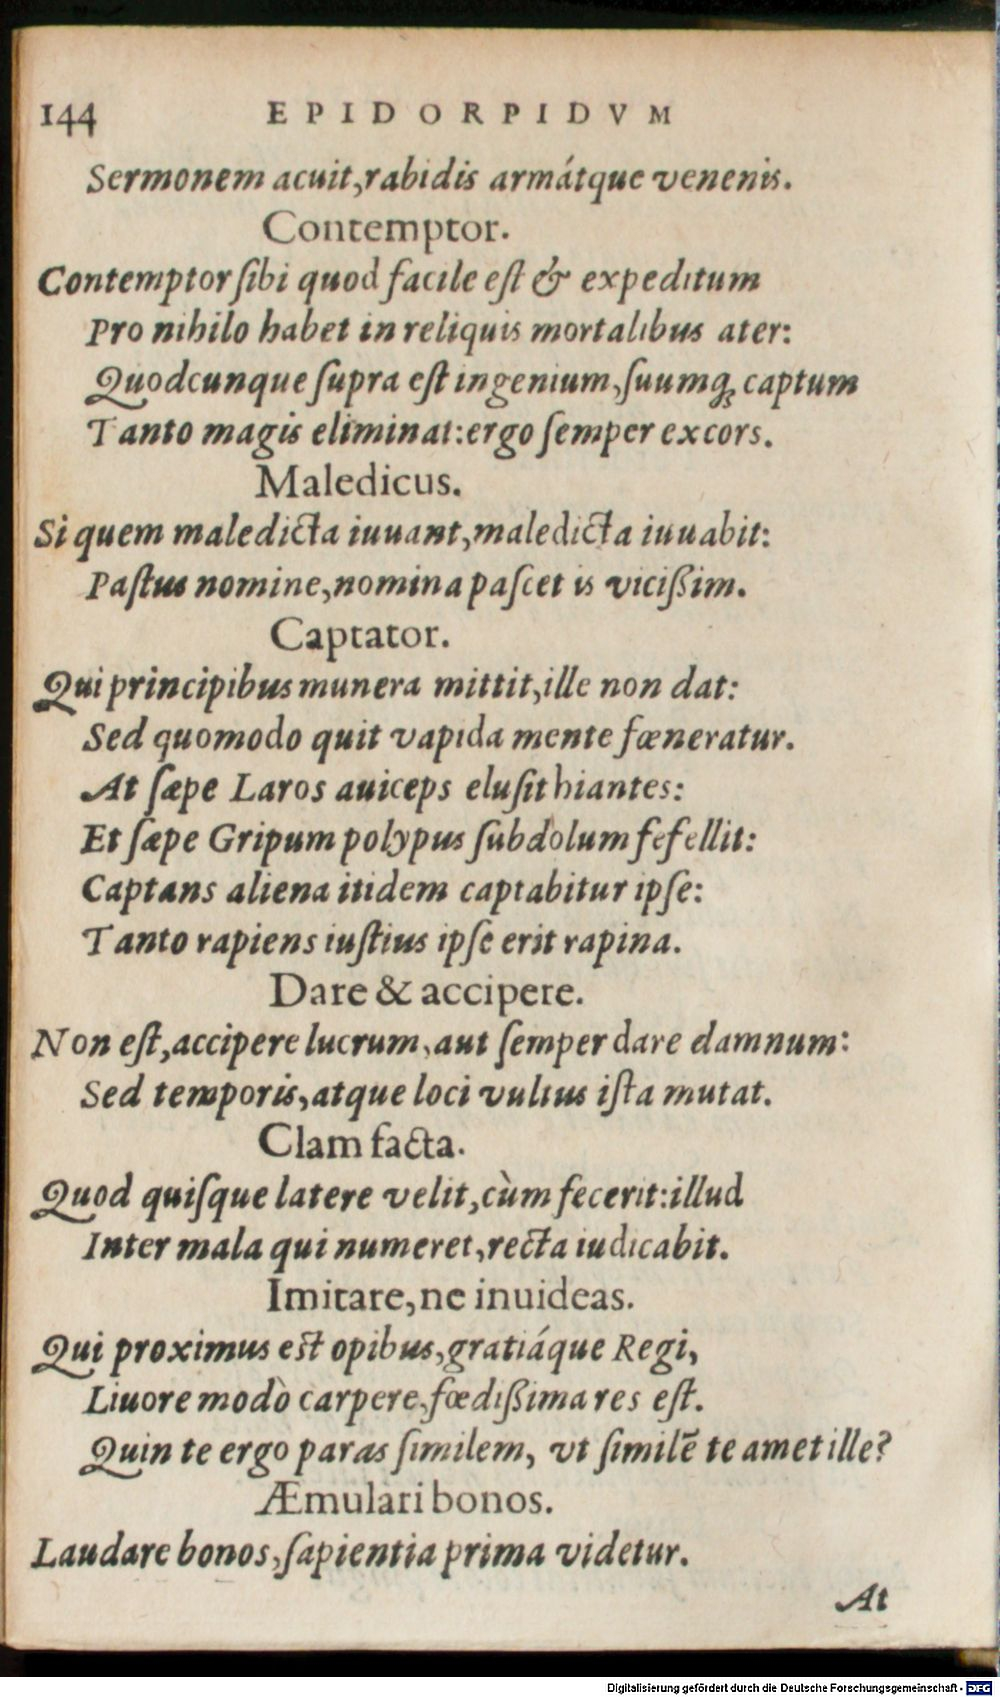 144 EPIDORPIDVM
Sermonem acuit,rabidis armátque venenis.
Contemptor.
Contemptor ſibi quod facile eſt & expeditum
Pro nihilo habet in reliquis mortalibus ater:
Quodcunque ſupra eſt ingenium,ſuumq́ꝫ captum
Tanto magis eliminat:ergo ſemper excors.
Maledicus.
Si quem maledicta iuuant,maledicta iuuabit:
Paſtus nomine,nomina paſcet is viciſsim.
Captator.
Qui principibus munera mittit,ille non dat:
Sed quomodo quit vapida mente fœneratur.
At ſæpe Laros auiceps eluſit hiantes:
Et ſæpe Gripum polypus ſubdolum fefellit:
Captans aliena itidem captabitur ipſe:
Tanto rapiens iuſtius ipſe erit rapina.
Dare & accipere.
Non eſt,accipere lucrum,aut ſemper dare damnum:
Sed temporis,atque loci vultus iſta mutat.
Clam facta.
Quod quiſque latere velit,cùm fecerit:illud
Inter mala qui numeret,recta iudicabit.
Imitare,ne inuideas.
Qui proximus eſt opibus,gratiáque Regi,
Liuore modò carpere,fœdiſsima res eſt.
Quin te ergo paras ſimilem, vt ſimilē te amet ille?
Æmulari bonos.
Laudare bonos,ſapientia prima videtur.
At
Digitalisierung gefördert durch die Deutsche Forschungsgemeinschaft - DFG